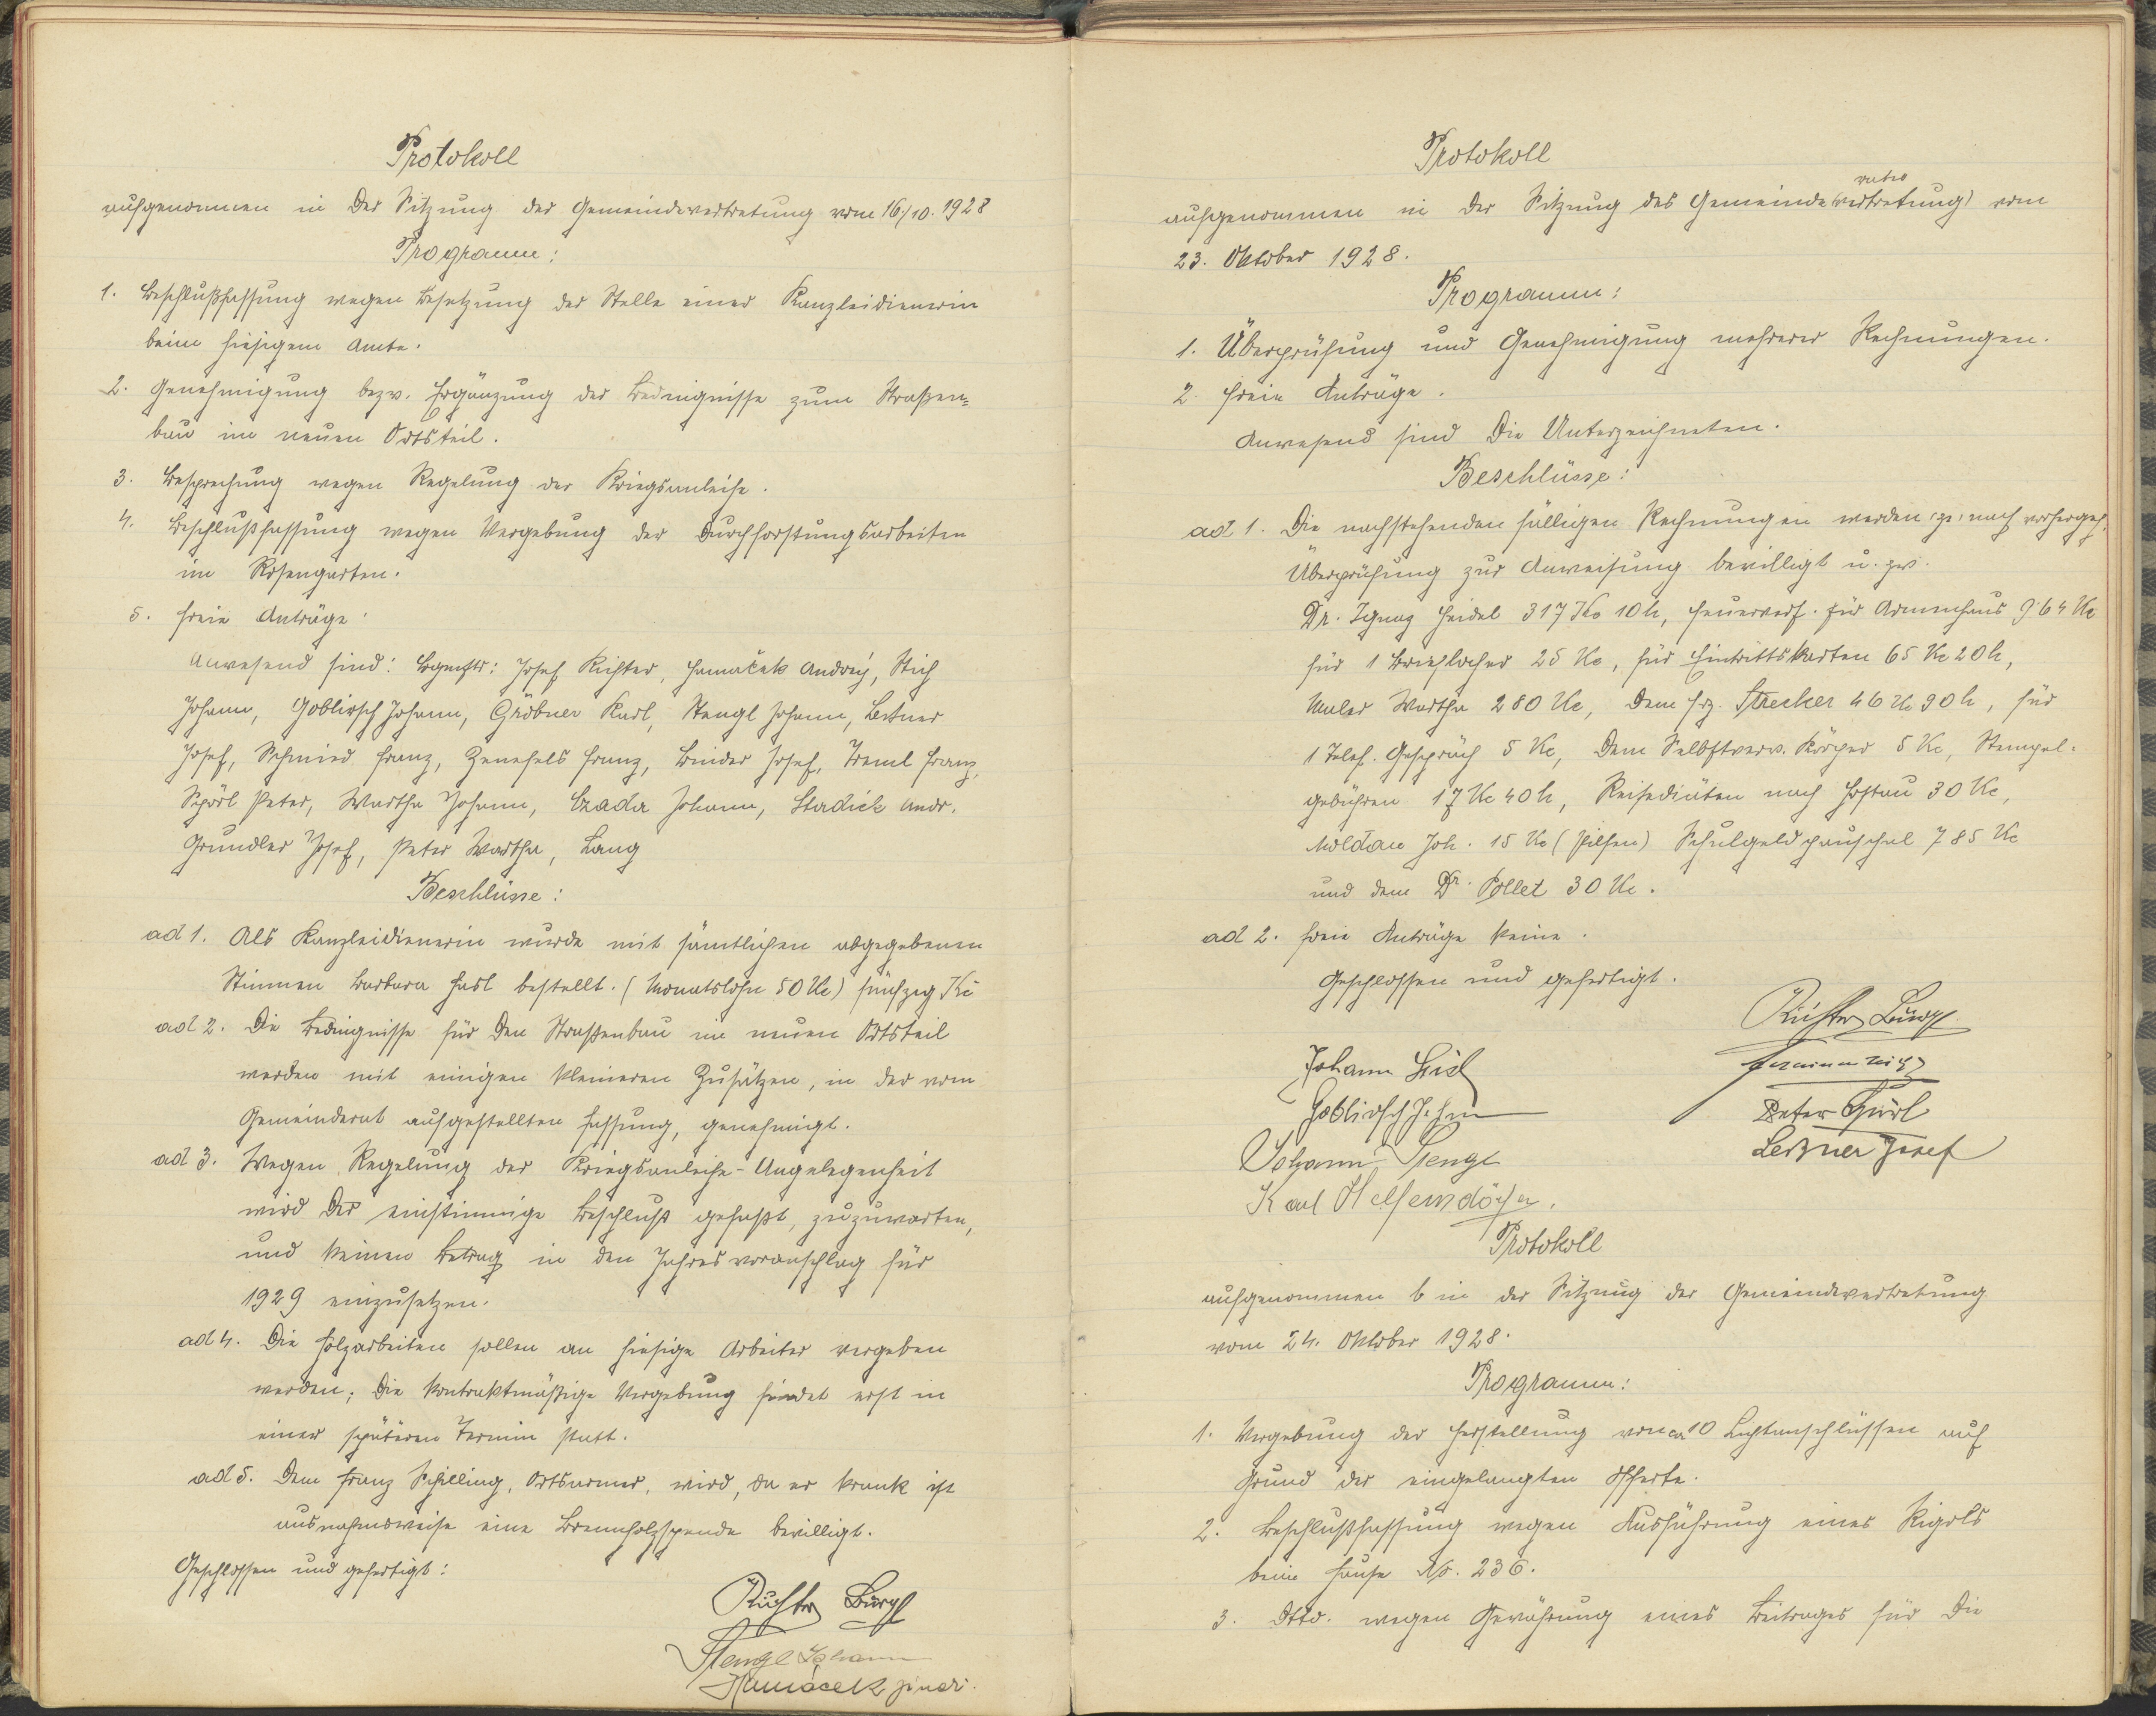 Protokoll
aufgenommen in der Sitzung der Gemeindevertretung vom 16./10. 1928
Programm:
1. Beschlußfassung wegen Besetzung der Stelle einer Kanzleidienerin
beim hiesigem Amte.
2. Genehmigung bezw. Ergänzung der Bedingnisse zum Straßen=
bau im neuen Ortsteil.
3. Besprechung wegen Regelung der Kriegsanleihe.
4. Beschlußfassung wegen Vergebung der Durchforstungsarbeiten
im Rosengarten.
5. freie Anträge.
Anwesend sind: Bgmstr: Josef Richter, Hamáček Andrej, Stich
Johann, Goblirsch Johann, Gröbner Karl, Stengl Johann, Leitner
Josef, Schmied Franz, Zenefels Franz, Binder Josef, Treml Franz,
Spörl Peter, Wartha Johann, Czada Johann, Sladick Andr.
Grundler Josef, Peter Wartha, Lang
Beschlüsse:
ad 1. Als Kanzleidienerin wurde mit sämtlichen abgegebenen
Stimmen Barbara Hasl bestellt. (Monatslohn 50 Kc) fünfzig Kč
ad 2. Die Bedingnisse für den Straßenbau im neuen Ortsteil
werden mit einigen kleineren Zusätzen, in der vom
Gemeinderat aufgestellten Fassung, genehmigt.
ad 3. Wegen Regelung der Kriegsanleihe-Angelegenheit
wird der einstimmige Beschluß gefaßt, zuzuwarten,
und keinen Betrag in den Jahresvoranschlag für
1929 einzusetzen.
ad 4. Die Holzarbeiten sollen an hiesige Arbeiter vergeben
werden; die kontraktmäßige Vergebung findet erst in
einer späteren Termin statt.
ad 5. Dem Franz Schilling, Ortsarmer, wird, da er krank ist
ausnahmsweise eine Brennholzspende bewilligt.
Geschlossen und gefertigt:
Richter Bürgl
Stengl Johann
Hamáček
Protokoll
rates
aufgenommen in der Sitzung des Gemeinde(vertretung) vom
23. Oktober 1928.
Programm:
1. Überprüfung und Genehmigung mehrerer Rechnungen.
2. freie Anträge.
Anwesend sind die Unterzeichneten.
Beschlüsse:
ad 1. Die nachstehenden fälligen Rechnungen werden nach vorhergeh.
Überprüfung zur Anweisung bewilligt u. zw.
Dr. Ignaz Heidel 317 Kc 10 h, Feuervers. für Armenhaus 9·64 Kc
für 1 Brieflocher 25 Kc, für Eintrittskarten 65 Kc 20 h,
Maler Wartha 280 Kc, dem Frz. Strecker 46 Kc 90 h, für
1 Telef. Gespräch 5 Kc, dem Selbstverw. Körper 5 Kc, Stempel-
gebühren 17 Kc 40 h, Reisediäten nach Hostau 30 Kc,
Moldan Joh. 15 Kc (Pilsen) Schulgeldpauschal 785 Kc
und dem Dr. Pollet 30 Kc.
ad 2. freie Anträge keine.
Geschlossen und gefertigt.
Richter Bürgl
Johann
Goblirsch Johann
Peter Spörl
Johann Stengl
Leitner Josef
Karl Helfendörfer.
Protokoll
aufgenommen in der Sitzung der Gemeindevertretung
vom 24. Oktober 1928.
Programm:
1. Vergebung der Herstellung von ca 10 Lichtanschlüssen auf
Grund der eingelangten Offerte.
2. Beschlußfassung wegen Ausführung eines Rigols
beim Hause No. 236.
3. Dtto. wegen Gewährung eines Beitrages für die